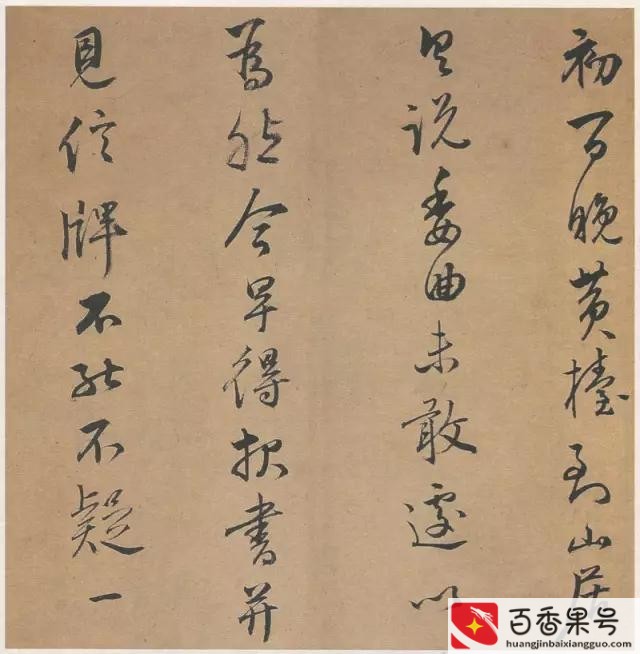 初一日晚黄㯖到山居
具说委曲未敢遽以
为然今早得报书并
见信牌不能不疑一
百香果号
huangjinbaixiangguo.com